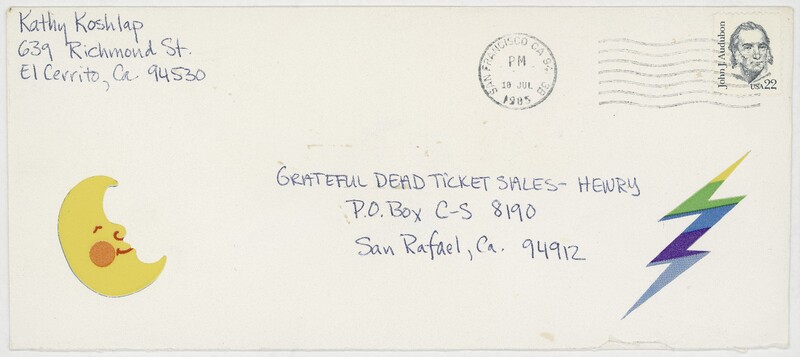 Kathy Koshlap
639 Richmond St.
El Cerrito, Ca. 94530
SAN FRANCISCO CA 94
PM
18 JUL
1985
John J. Audubon
USA 22
GRATEFUL DEAD TICKET SALES - HENRY
P.O. Box C-S 8190
San Rafael, Ca. 94912